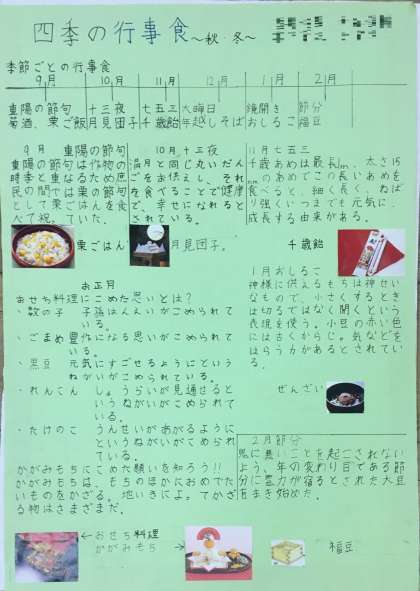 四季の行事食〜秋・冬〜
季節ごとの行事食
9月 10月 11月 12月 1月 2月
重陽の節句 十三夜 七五三 大晦日 鏡開き 節分
菊酒、栗ご飯 月見団子 千歳飴 年越しそば おしるこ 福豆
9月 重陽の節句
重陽の節句は作物の
時季と重なるため庶
民の間では栗の節句
として栗ごはんを食
べて祝っていた。
栗ごはん
10月 十三夜
満月と同じ丸いだん
ごをお供えし、それ
を食べることで健康
で、幸せになれると
されている。
月見団子。
11月 七五三
千歳あめは最長1m、太さ15
mmのあめでこの長いあめを
食べると、細く長く、ねば
り強くいつまでも元気に、
成長する由来がある。
千歳飴
お正月
おせち料理にこめた思いとは?
・数の子 子孫はんえいがこめられて
いる。
・ごまめ 豊作になる思いがこめられて
いる。
・黒豆 元気にすごせるようにという
ねがいがこめられている。
・れんこん しょうらいが見通せると
いうねがいがこめられて
いる。
・たけのこ うんせいがあがるように
というねがいがこめられ
ている。
かがみもちにこめた願いを知ろう!!
かがみもちは、もちのほかにおめでた
いものをかざる。地いきによってかざ
る物はさまざまだ。
←おせち料理
かがみもち→
1月おしるこ
神様に供えるもちは神せい
なもので、小さくするとき
は切るではなく開くという
表現を使う。小豆の赤い色
にはさくからじ。気などを
はらう力があるとされてい
る。
ぜんざい
2月節分
悪いことを起こされない
よう、年の変わり目である節
分に霊力が宿るとされた大豆
をまき始めた。
福豆